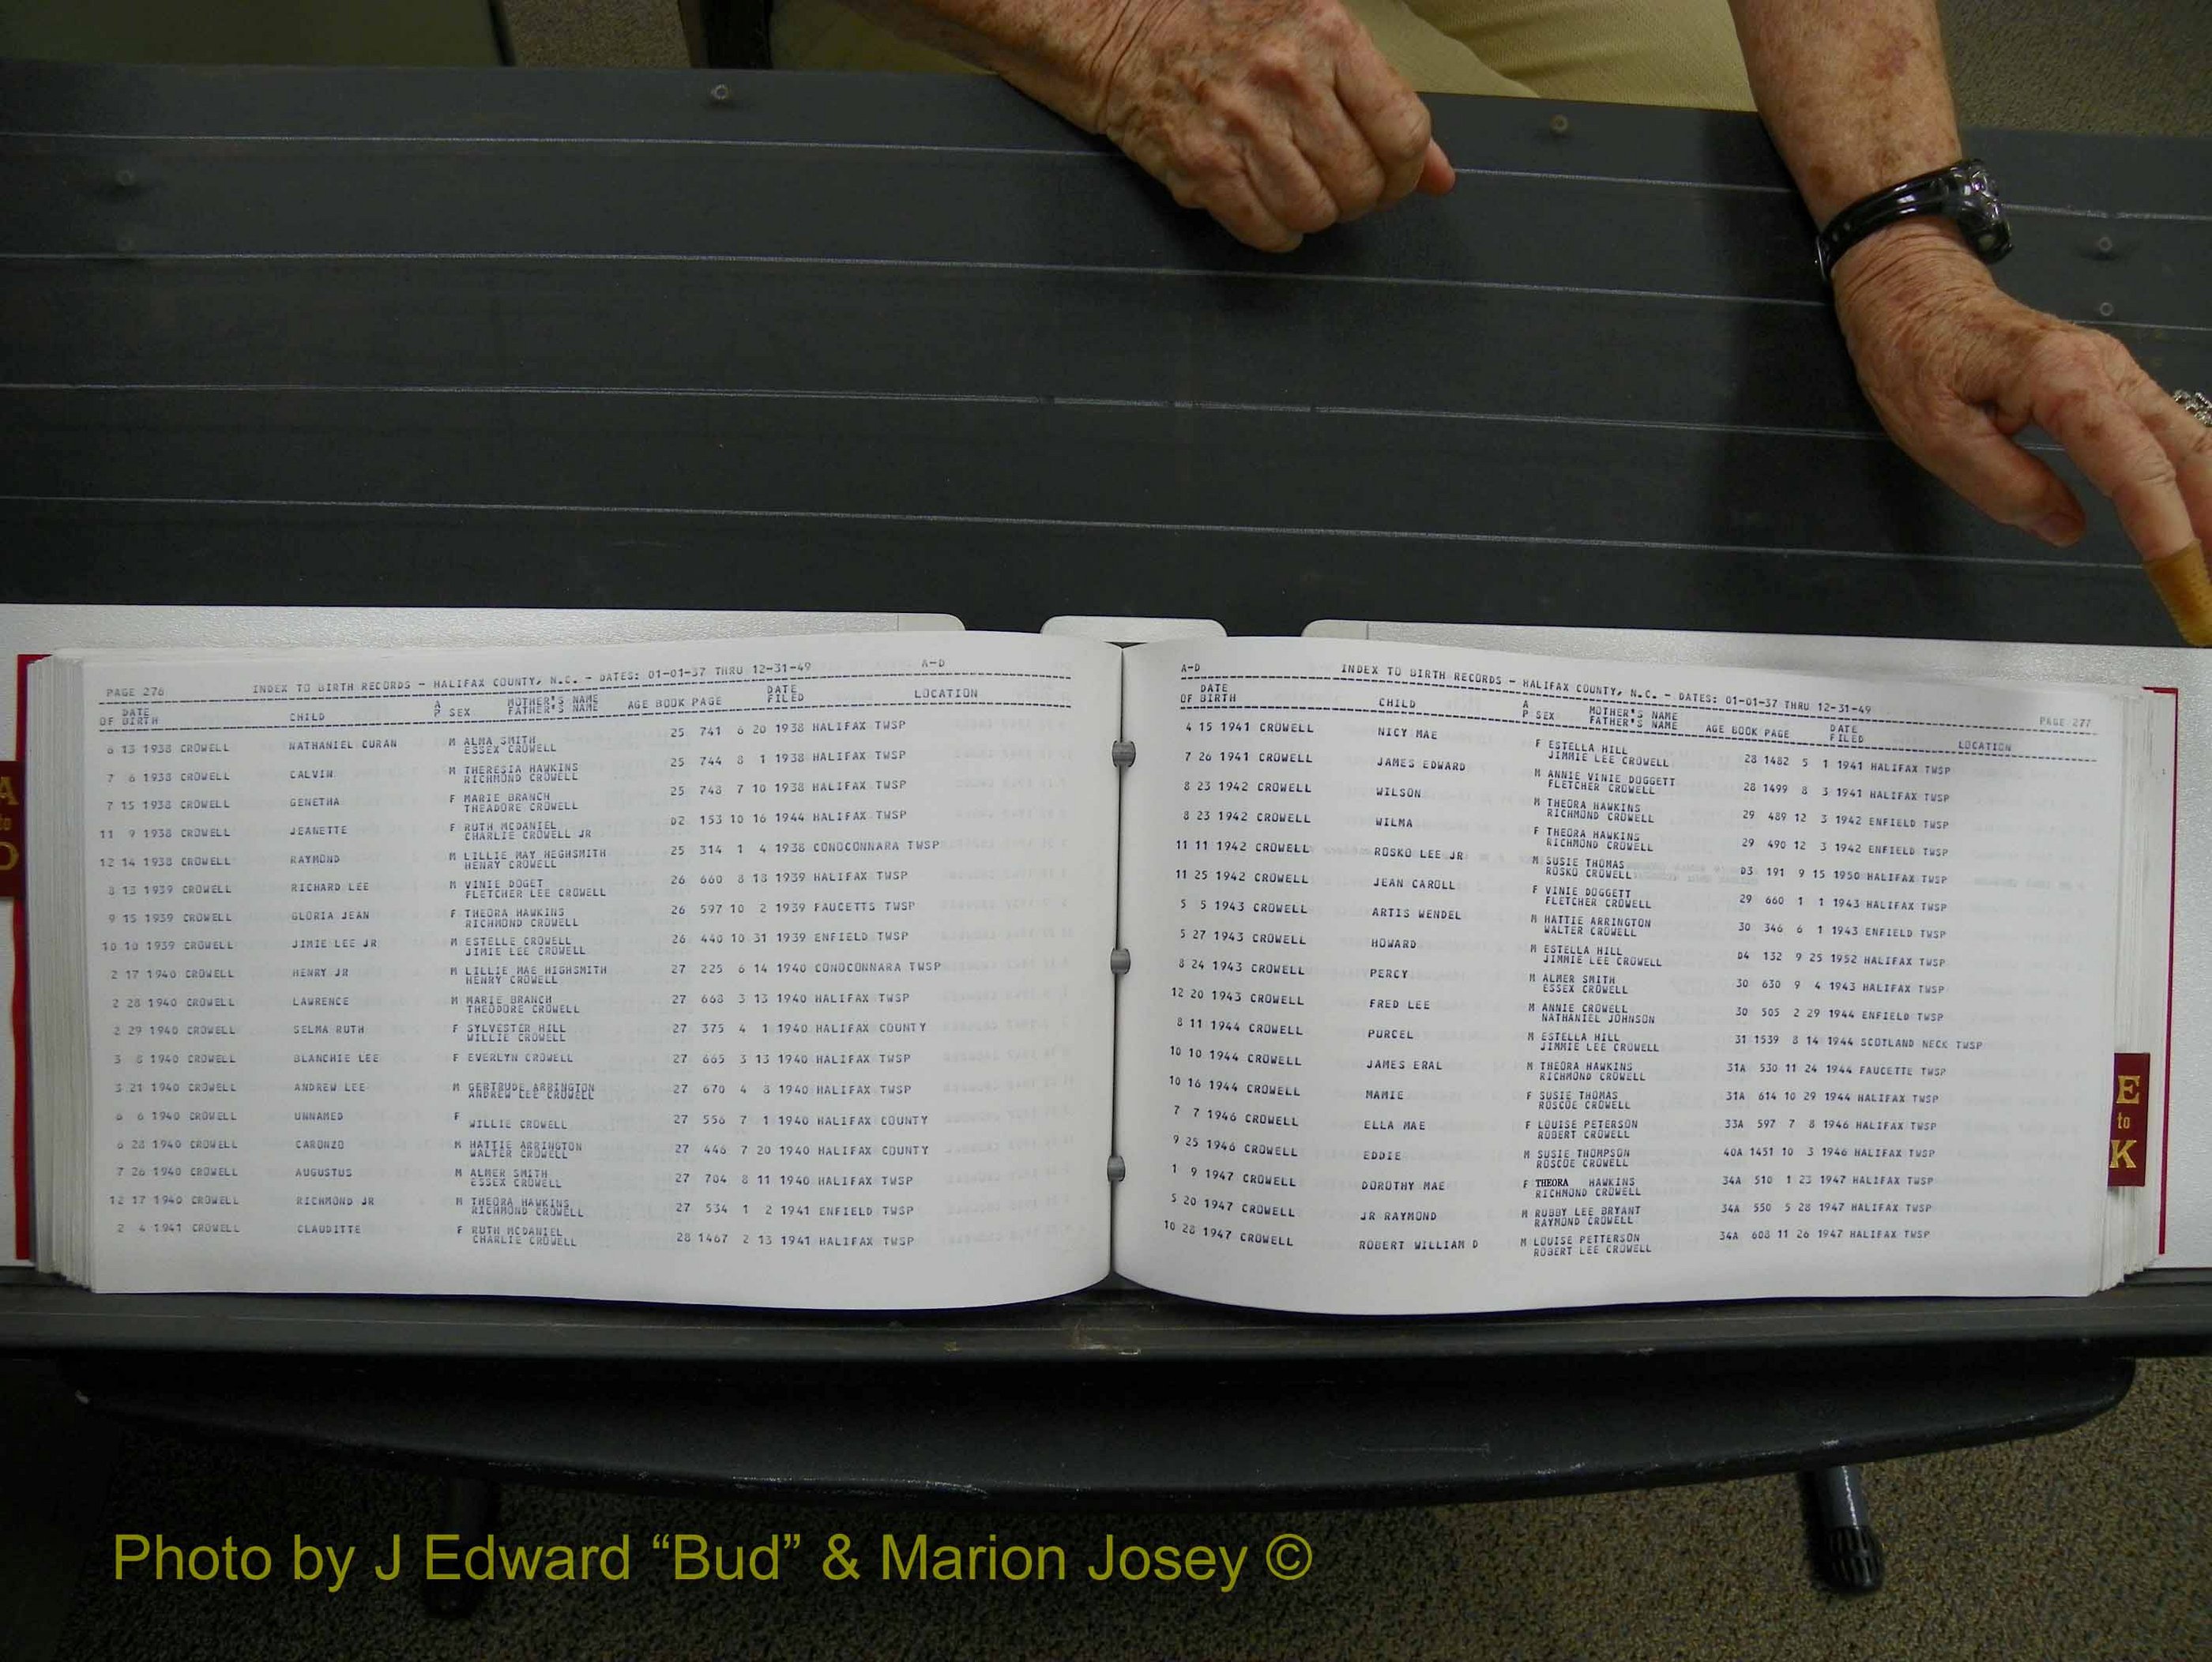 PAGE 276 INDEX TO BIRTH RECORDS - HALIFAX COUNTY, N.C. - DATES: 01-01-37 THRU 12-31-49 A-D
DATE A MOTHER'S NAME DATE
OF BIRTH CHILD P SEX FATHER'S NAME AGE BOOK PAGE FILED LOCATION
6 13 1938 CROWELL NATHANIEL CURAN M ALMA SMITH 25 741 6 20 1938 HALIFAX TWSP
ESSEX CROWELL
7 6 1938 CROWELL CALVIN M THERESIA HAWKINS 25 744 8 1 1938 HALIFAX TWSP
RICHMOND CROWELL
7 15 1938 CROWELL GENETHA F MARIE BRANCH 25 748 7 10 1938 HALIFAX TWSP
THEADORE CROWELL
11 9 1938 CROWELL JEANETTE F RUTH MCDANIEL D2 153 10 16 1944 HALIFAX TWSP
CHARLIE CROWELL JR
12 14 1938 CROWELL RAYMOND M LILLIE MAY HEGHSMITH 25 314 1 4 1938 CONOCONNARA TWSP
HENRY CROWELL
8 13 1939 CROWELL RICHARD LEE M VINIE DOGET 26 660 8 18 1939 HALIFAX TWSP
FLETCHER LEE CROWELL
9 15 1939 CROWELL GLORIA JEAN F THEORA HAWKINS 26 597 10 2 1939 FAUCETTS TWSP
RICHMOND CROWELL
10 10 1939 CROWELL JIMIE LEE JR M ESTELLE CROWELL 26 440 10 31 1939 ENFIELD TWSP
JIMIE LEE CROWELL
2 17 1940 CROWELL HENRY JR M LILLIE MAE HIGHSMITH 27 225 6 14 1940 CONOCONNARA TWSP
HENRY CROWELL
2 28 1940 CROWELL LAWRENCE M MARIE BRANCH 27 668 3 13 1940 HALIFAX TWSP
THEODORE CROWELL
2 29 1940 CROWELL SELMA RUTH F SYLVESTER HILL 27 375 4 1 1940 HALIFAX COUNTY
WILLIE CROWELL
3 8 1940 CROWELL BLANCHIE LEE F EVERLYN CROWELL 27 665 3 13 1940 HALIFAX TWSP
3 21 1940 CROWELL ANDREW LEE M GERTRUDE ARRINGTON 27 670 4 8 1940 HALIFAX TWSP
ANDREW LEE CROWELL
6 6 1940 CROWELL UNNAMED F 27 556 7 1 1940 HALIFAX COUNTY
WILLIE CROWELL
6 28 1940 CROWELL CARONZO M HATTIE ARRINGTON 27 446 7 20 1940 HALIFAX COUNTY
WALTER CROWELL
7 26 1940 CROWELL AUGUSTUS M ALMER SMITH 27 704 8 11 1940 HALIFAX TWSP
ESSEX CROWELL
12 17 1940 CROWELL RICHMOND JR M THEORA HAWKINS 27 534 1 2 1941 ENFIELD TWSP
RICHMOND CROWELL
2 4 1941 CROWELL CLAUDITTE F RUTH MCDANIEL 28 1467 2 13 1941 HALIFAX TWSP
CHARLIE CROWELL
A-D INDEX TO BIRTH RECORDS - HALIFAX COUNTY, N.C. - DATES: 01-01-37 THRU 12-31-49 PAGE 277
DATE A MOTHER'S NAME DATE
OF BIRTH CHILD P SEX FATHER'S NAME AGE BOOK PAGE FILED LOCATION
4 15 1941 CROWELL NICY MAE F ESTELLA HILL 28 1482 5 1 1941 HALIFAX TWSP
JIMMIE LEE CROWELL
7 26 1941 CROWELL JAMES EDWARD M ANNIE VINIE DOGGETT 28 1499 8 3 1941 HALIFAX TWSP
FLETCHER CROWELL
8 23 1942 CROWELL WILSON M THEORA HAWKINS 29 489 12 3 1942 ENFIELD TWSP
RICHMOND CROWELL
8 23 1942 CROWELL WILMA F THEORA HAWKINS 29 490 12 3 1942 ENFIELD TWSP
RICHMOND CROWELL
11 11 1942 CROWELL ROSKO LEE JR M SUSIE THOMAS D3 191 9 15 1950 HALIFAX TWSP
ROSKO CROWELL
11 25 1942 CROWELL JEAN CAROLL F VINIE DOGGETT 29 660 1 1 1943 HALIFAX TWSP
FLETCHER CROWELL
5 5 1943 CROWELL ARTIS WENDEL M HATTIE ARRINGTON 30 346 6 1 1943 ENFIELD TWSP
WALTER CROWELL
5 27 1943 CROWELL HOWARD M ESTELLA HILL D4 132 9 25 1952 HALIFAX TWSP
JIMMIE LEE CROWELL
8 24 1943 CROWELL PERCY M ALMER SMITH 30 630 9 4 1943 HALIFAX TWSP
ESSEX CROWELL
12 20 1943 CROWELL FRED LEE M ANNIE CROWELL 30 505 2 29 1944 ENFIELD TWSP
NATHANIEL JOHNSON
8 11 1944 CROWELL PURCEL M ESTELLA HILL 31 1539 8 14 1944 SCOTLAND NECK TWSP
JIMMIE LEE CROWELL
10 10 1944 CROWELL JAMES ERAL M THEORA HAWKINS 31A 530 11 24 1944 FAUCETTE TWSP
RICHMOND CROWELL
10 16 1944 CROWELL MAMIE F SUSIE THOMAS 31A 614 10 29 1944 HALIFAX TWSP
ROSCOE CROWELL
7 7 1946 CROWELL ELLA MAE F LOUISE PETERSON 33A 597 7 8 1946 HALIFAX TWSP
ROBERT CROWELL
9 25 1946 CROWELL EDDIE M SUSIE THOMPSON 40A 1451 10 3 1946 HALIFAX TWSP
ROSCOE CROWELL
1 9 1947 CROWELL DOROTHY MAE F THEORA HAWKINS 34A 510 1 23 1947 HALIFAX TWSP
RICHMOND CROWELL
5 20 1947 CROWELL JR RAYMOND M RUBBY LEE BRYANT 34A 550 5 28 1947 HALIFAX TWSP
RAYMOND CROWELL
10 28 1947 CROWELL ROBERT WILLIAM D M LOUISE PETTERSON 34A 608 11 26 1947 HALIFAX TWSP
ROBERT LEE CROWELL
A
to
D
E
to
K
Photo by J Edward “Bud” & Marion Josey ©